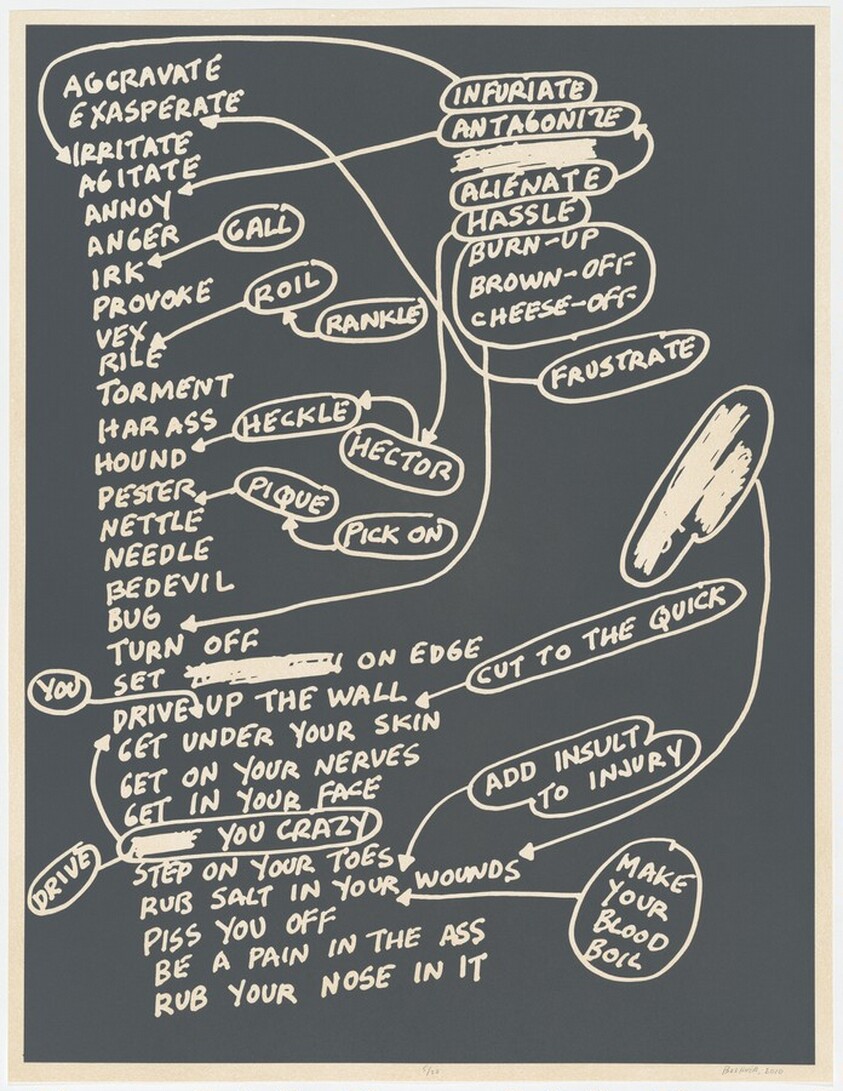 AGGRAVATE
EXASPERATE
IRRITATE
AGITATE
ANNOY
ANGER
IRK
PROVOKE
VEX
RILE
TORMENT
HARASS
HOUND
PESTER
NETTLE
NEEDLE
BEDEVIL
BUG
TURN OFF
SET ON EDGE
DRIVE UP THE WALL
GET UNDER YOUR SKIN
GET ON YOUR NERVES
GET IN YOUR FACE
YOU CRAZY
STEP ON YOUR TOES
RUB SALT IN YOUR WOUNDS
PISS YOU OFF
BE A PAIN IN THE ASS
RUB YOUR NOSE IN IT
YOU
DRIVE
GALL
ROIL
RANKLE
HECKLE
HECTOR
PIQUE
PICK ON
INFURIATE
ANTAGONIZE
ALIENATE
HASSLE
BURN-UP
BROWN-OFF
CHEESE-OFF
FRUSTRATE
CUT TO THE QUICK
ADD INSULT
TO INJURY
MAKE
YOUR
BLOOD
BOIL
2010